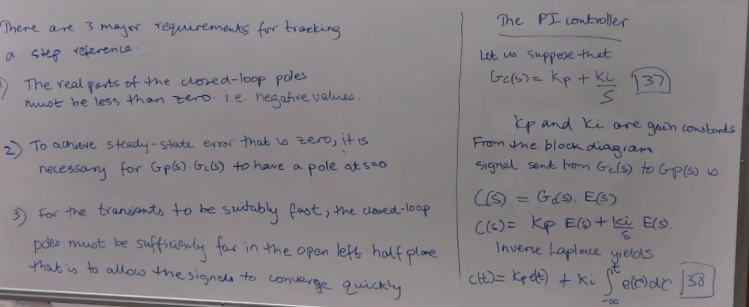 There are 3 major requirements for tracking
a step reference.
1) The real parts of the closed-loop poles
must be less than zero. i.e. negative values.
2) To achieve steady-state error that is zero, it is
necessary for Gp(s).Gc(s) to have a pole at s=0
3) For the transients to be suitably fast, the closed-loop
poles must be sufficiently far in the open left half plane
that is to allow the signals to converge quickly
The PI controller
Let us suppose that
Gc(s) = Kp + Ki/S [37]
Kp and Ki are gain constants
From the block diagram
signal sent from Gc(s) to Gp(s) is
C(s) = Gc(s). E(s)
C(s) = Kp E(s) + Ki/s E(s).
Inverse Laplace yields
c(t) = Kp e(t) + Ki ∫_{-∞}^{t} e(τ)dτ [38]